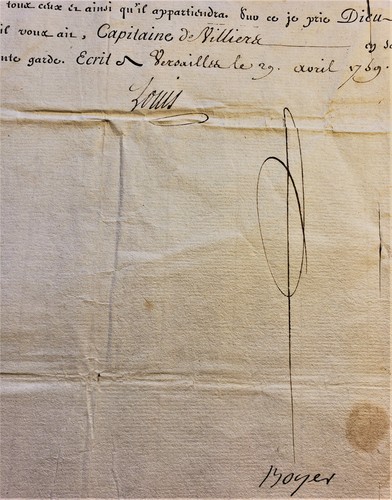 tous ceux et ainsi qu'il appartiendra. Sur ce je prie Dieu
il vous ait, Capitaine de Villiers en sa
nte garde. Ecrit a Versailles le 29. avril 1759.
Louis
Boyer